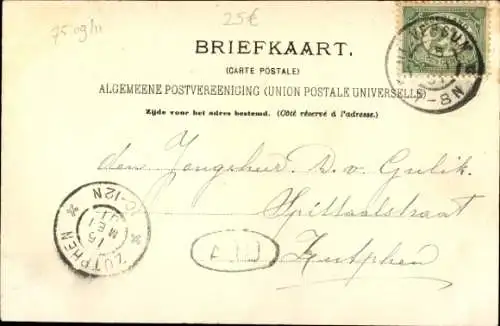 75 oghi
25€
BRIEFKAART.
(CARTE POSTALE)
ALGEMEENE POSTVEREENIGING (UNION POSTALE UNIVERSELLE)
Zijde voor het adres bestemd. (Côté réservé à l'adresse.)
den Jongeheer D. v. Gulik.
Spittaalstraat
Zutphen
ZUTPHEN
10-12N
15
MEI
7-8N